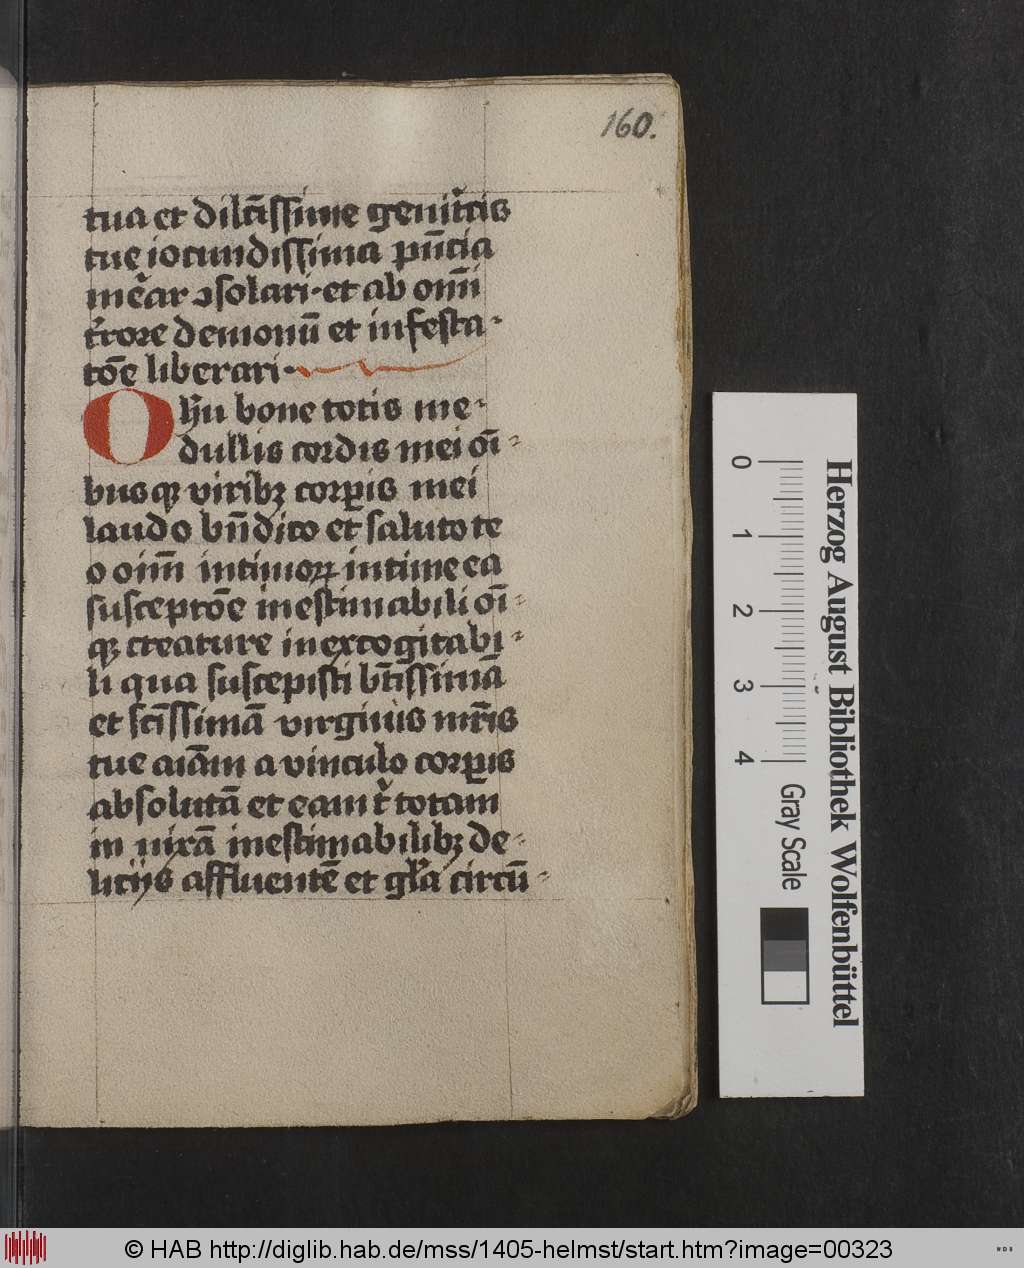 160.
tua et dilc̄issime genit͛cis
tue iocundissima pn̄cia
me͛ar ɔsolari·et ab om̄i
t͛rore demonū et infesta-
cōe liberari·
O Ih̄u bone totis me-
dullis cordis mei oī-
busqꝫ viribꝫ corꝑis mei
laudo bn̄dico et saluto te
o oim̄ intimoꝝ intime ea
susceptōe inestimabili oī-
qꝫ creature inexcogitabi-
li qua suscepisti bt̄issimā
et sc̄issimā virginis mr̄is
tue aīam a vinculo corꝑis
absolutā et eam t͛ totam
in mirā inestimabilibꝫ de-
licijs affluentē et gl͛a circū-
0 1 2 3 4
Herzog August Bibliothek Wolfenbüttel
Gray Scale
© HAB http://diglib.hab.de/mss/1405-helmst/start.htm?image=00323